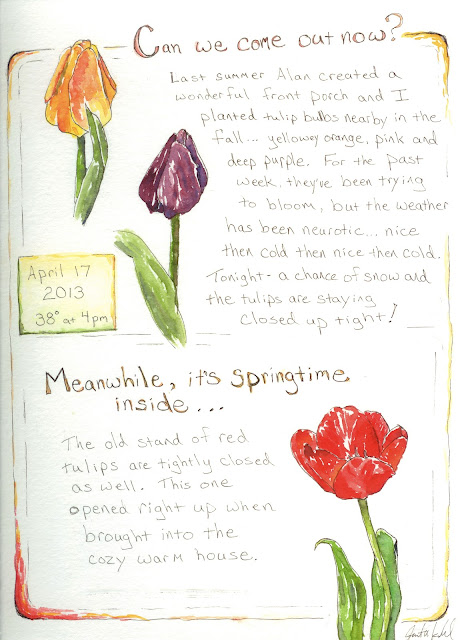 Can we come out now?
Last summer Alan created a
wonderful front porch and I
planted tulip bulbs nearby in the
fall... yellowey orange, pink and
deep purple. For the past
week, they've been trying
to bloom, but the weather
has been neurotic... nice
then cold then nice then cold.
Tonight - a chance of snow and
the tulips are staying
closed up tight!
April 17
2013
38° at 4pm
Meanwhile, it's springtime
inside...
The old stand of red
tulips are tightly closed
as well. This one
opened right up when
brought into the
cozy warm house.